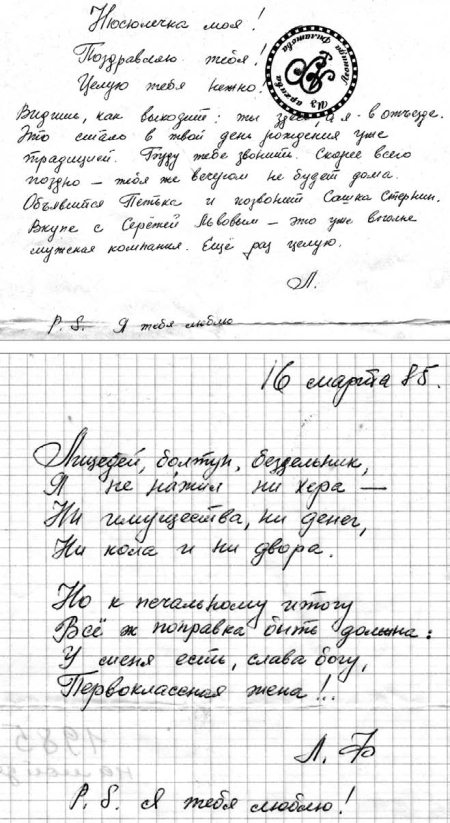 Нюсюлечка моя!
Поздравляю тебя!
Целую тебя нежно!
Из архива Леонида Филатова
Видишь, как выходит: ты здесь, а я - в отъезде.
Это стало в твой день рождения уже
традицией. Буду тебе звонить. Скорее всего
поздно – тебя же весь день не будет дома.
Объявится Петька и позвонит Сашка Стернин.
Вкупе с Серёжей Львовым – это уже вполне
мужская компания. Ещё раз целую.
Л.
P.S. Я тебя люблю
16 марта 85.
Лицедей, болтун, бездельник,
Я не нажил ни хера —
Ни имущества, ни денег,
Ни кола и ни двора.
Но к печальному итогу
Всё ж поправка быть должна:
У меня есть, слава богу,
Первоклассная жена!..
Л. Ф
P.S. Я тебя люблю!
1985